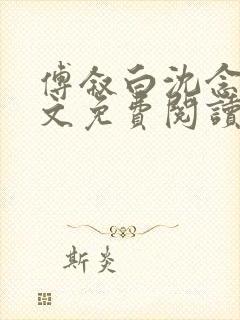 傅叙白沈念
文免費閱讀
斯炎